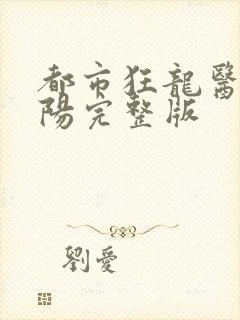 都市狂龍醫
陽完整版
劉愛